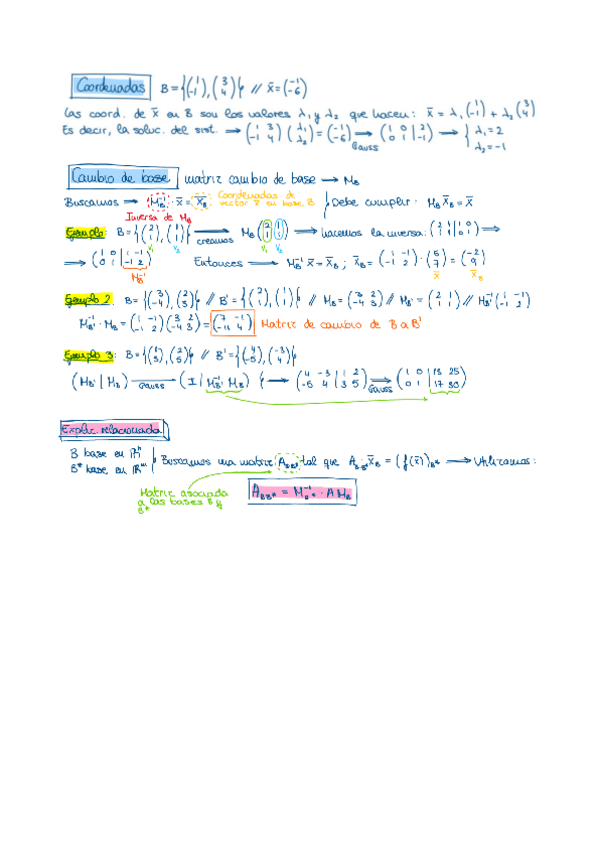 Coordenadas B = {(1 -1), (3 4)} // x̄ = (-1 -6)
Las coord. de x̄ en B son los valores λ₁ y λ₂ que hacen: x̄ = λ₁ (1 -1) + λ₂ (3 4)
Es decir, la soluc. del sist. → (1 3 / -1 4) (λ₁ / λ₂) = (-1 / -6) → Gauss (1 0 | 2 / 0 1 | -1) → { λ₁ = 2 / λ₂ = -1
Cambio de base matriz cambio de base → M_B
Buscamos → M_B⁻¹ · x̄ = x̄_B : Coordenadas de vector x̄ en base B } Debe cumplir: M_B x̄_B = x̄
Inversa de M_B
Ejemplo: B = {(2 1), (1 1)} → creamos M_B (2 1 / 1 1) → hacemos la inversa: (2 1 | 1 0 / 1 1 | 0 1) →
v₁ v₂ v₁ v₂
→ (1 0 | 1 -1 / 0 1 | -1 2) Entonces → M_B⁻¹ x̄ = x̄_B ; x̄_B = (1 -1 / -1 2) · (5 / 7) = (-2 / 9)
M_B⁻¹ x̄ x̄_B
Ejemplo 2: B = {(3 -4), (2 3)} // B' = {(2 1), (1 1)} // M_B = (3 2 / -4 3) // M_B' = (2 1 / 1 1) // M_B'⁻¹ (1 -1 / -1 2)
M_B'⁻¹ · M_B = (1 -1 / -1 2) (3 2 / -4 3) = (7 -1 / -11 4) Matriz de cambio de B a B'
Ejemplo 3: B = {(1 3), (2 5)} // B' = {(4 -5), (-3 4)}
(M_B' | M_B) → Gauss (I | M_B'⁻¹ M_B) } → (4 -3 | 1 2 / -5 4 | 3 5) → Gauss (1 0 | 13 23 / 0 1 | 17 30)
Explic. relacionada
B base en ℝⁿ
B* base en ℝᵐ } Buscamos una matriz A_BB* tal que A_BB* x̄_B = (f(x̄))_B* → Utilizamos:
Matriz asociada
a las bases B y
B*
A_BB* = M_B*⁻¹ · A M_B